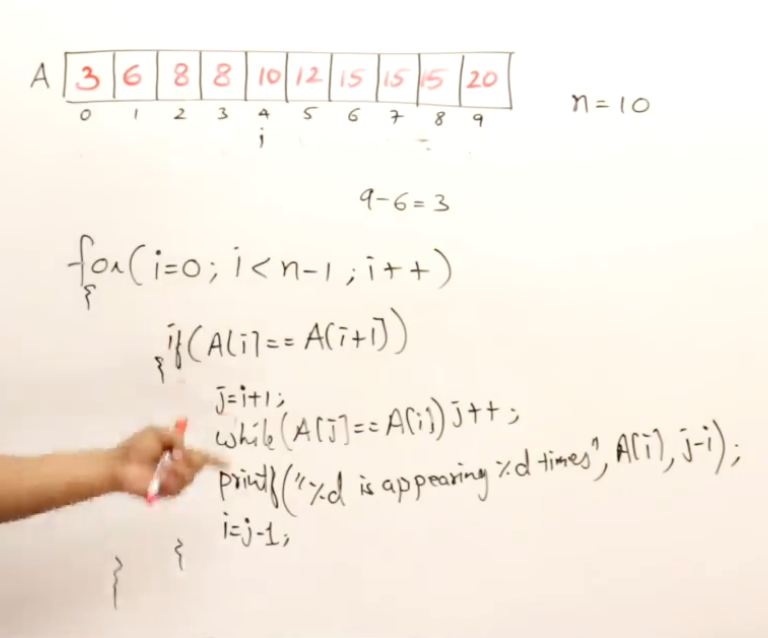 A 3 6 8 8 10 12 15 15 15 20
0 1 2 3 4 5 6 7 8 9
n=10
j
9-6=3
for(i=0; i<n-1; i++)
{
if(A[i]==A[i+1])
{
j=i+1;
while(A[j]==A[i]) j++;
printf("%d is appearing %d times", A[i], j-i);
i=j-1;
}
}